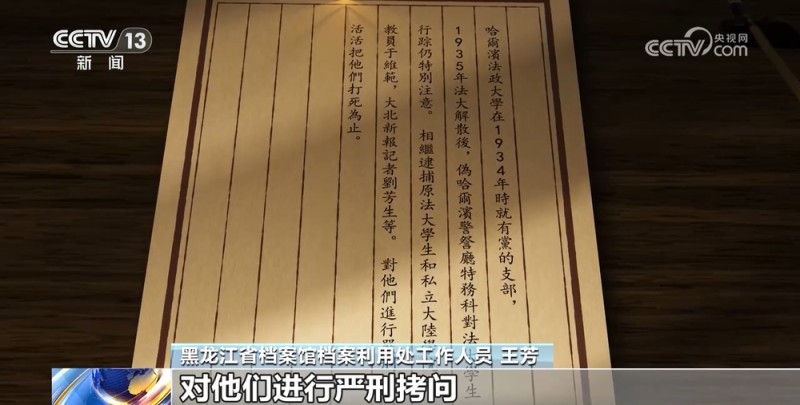 CCTV 13
新闻
央视网
CCTV.com
哈爾濱法政大學在1934年時就有黨的支部，
1935年法大解散後，偽哈爾濱警察廳特務科對法大學生
行踪仍特別注意。相繼逮捕原法大學生和私立大陸學
教員于維範，大北新報記者劉芳生等。對他們進行嚴
活活把他們打死為止。
黑龙江省档案馆档案利用处工作人员 王芳
对他们进行严刑拷问